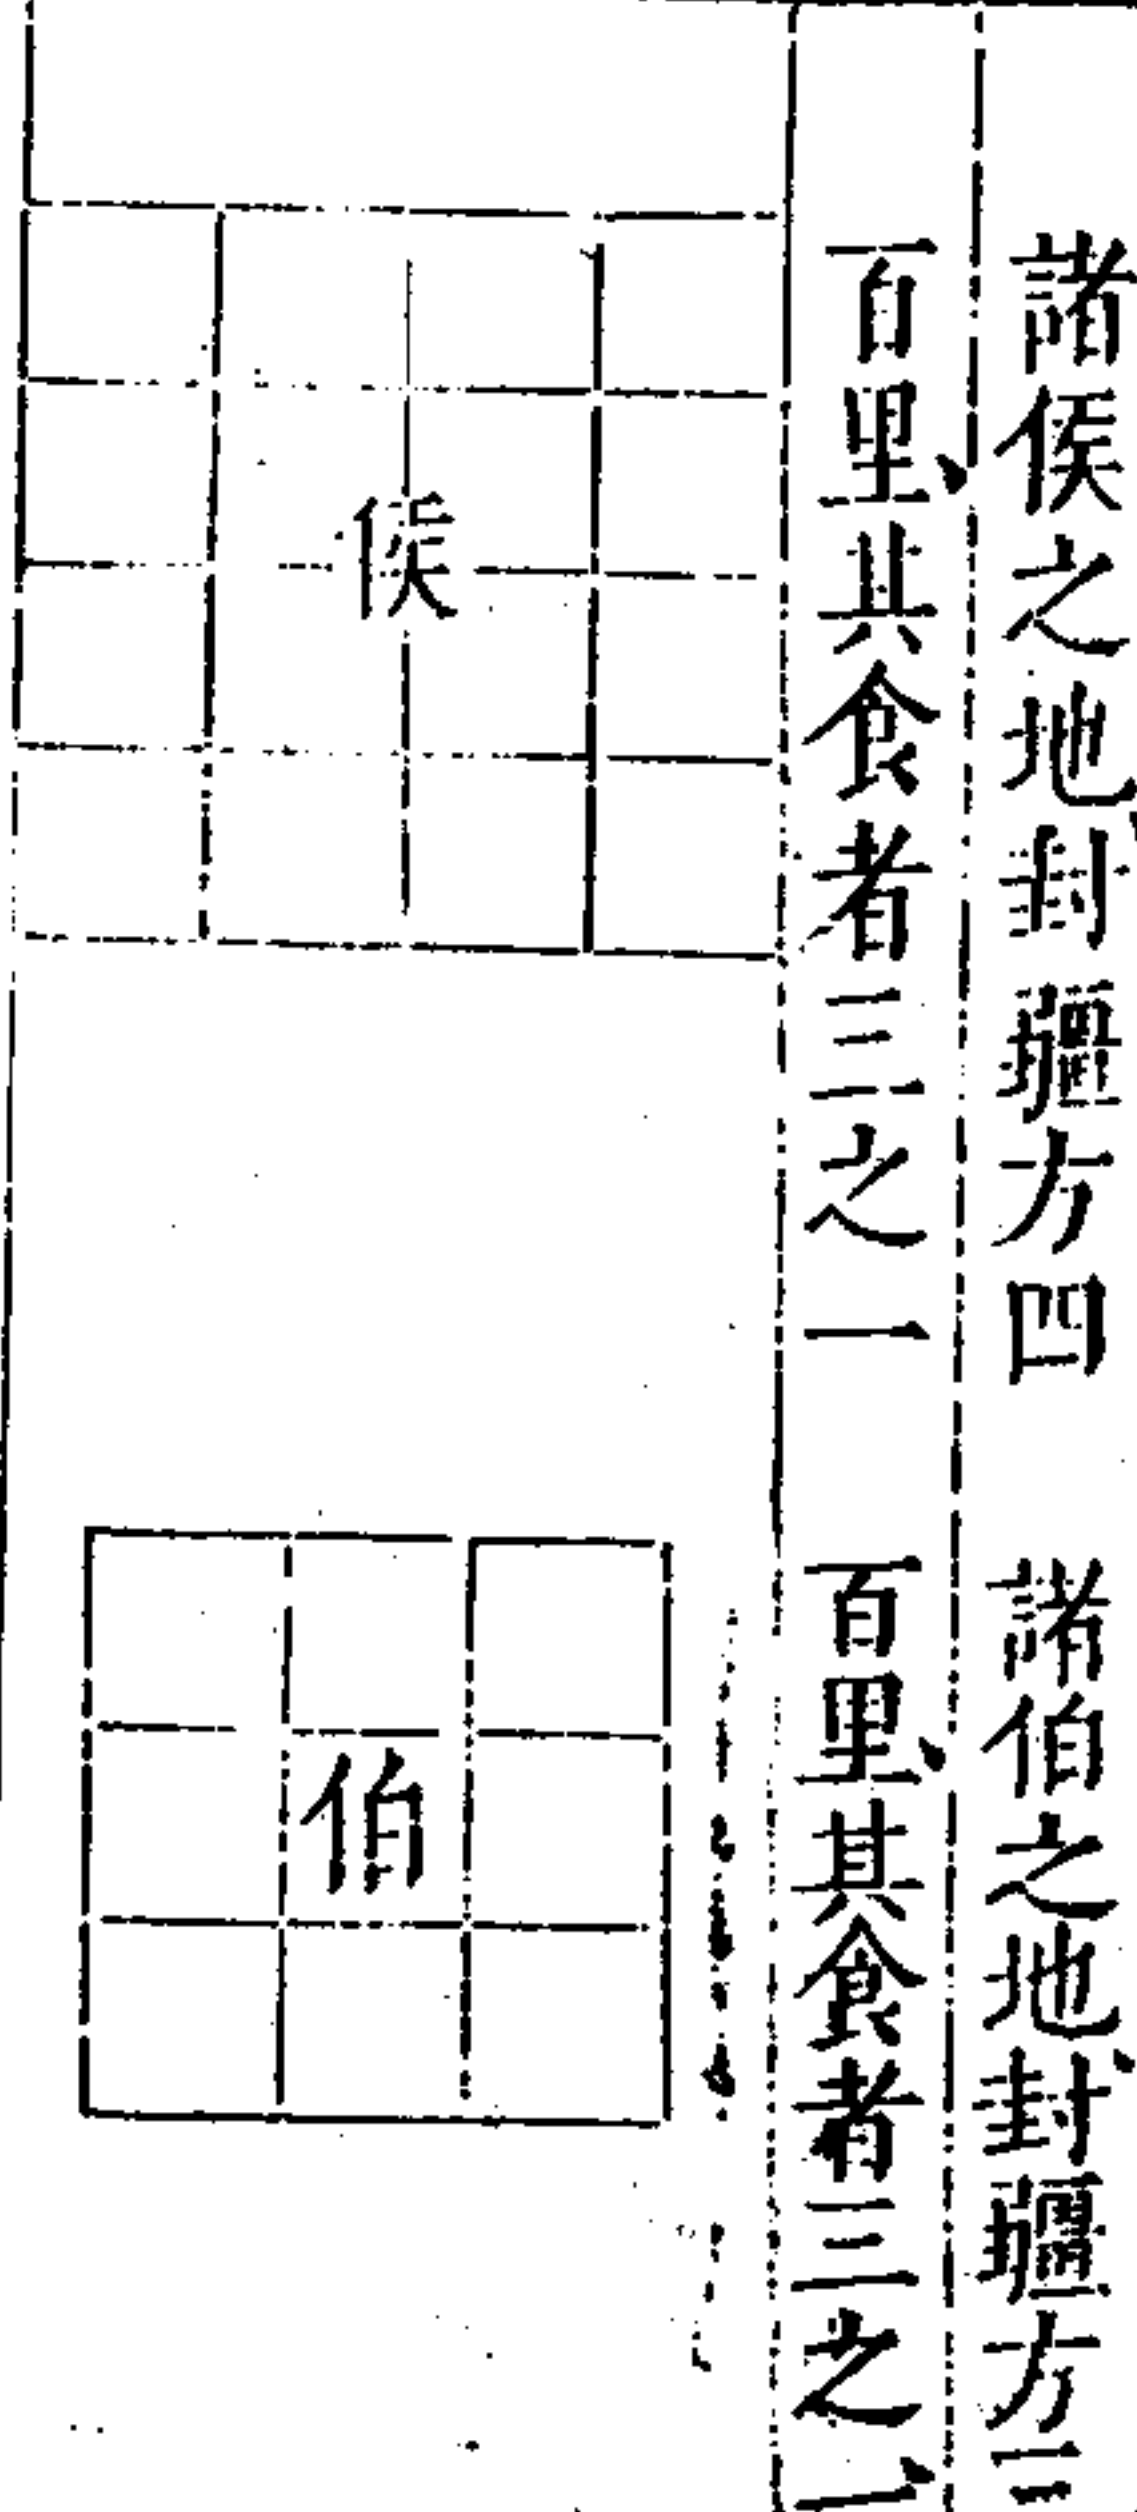 諸侯之地封疆方四
百里其食者三之一
侯
諸伯之地封疆方三
百里其食者三之一
伯